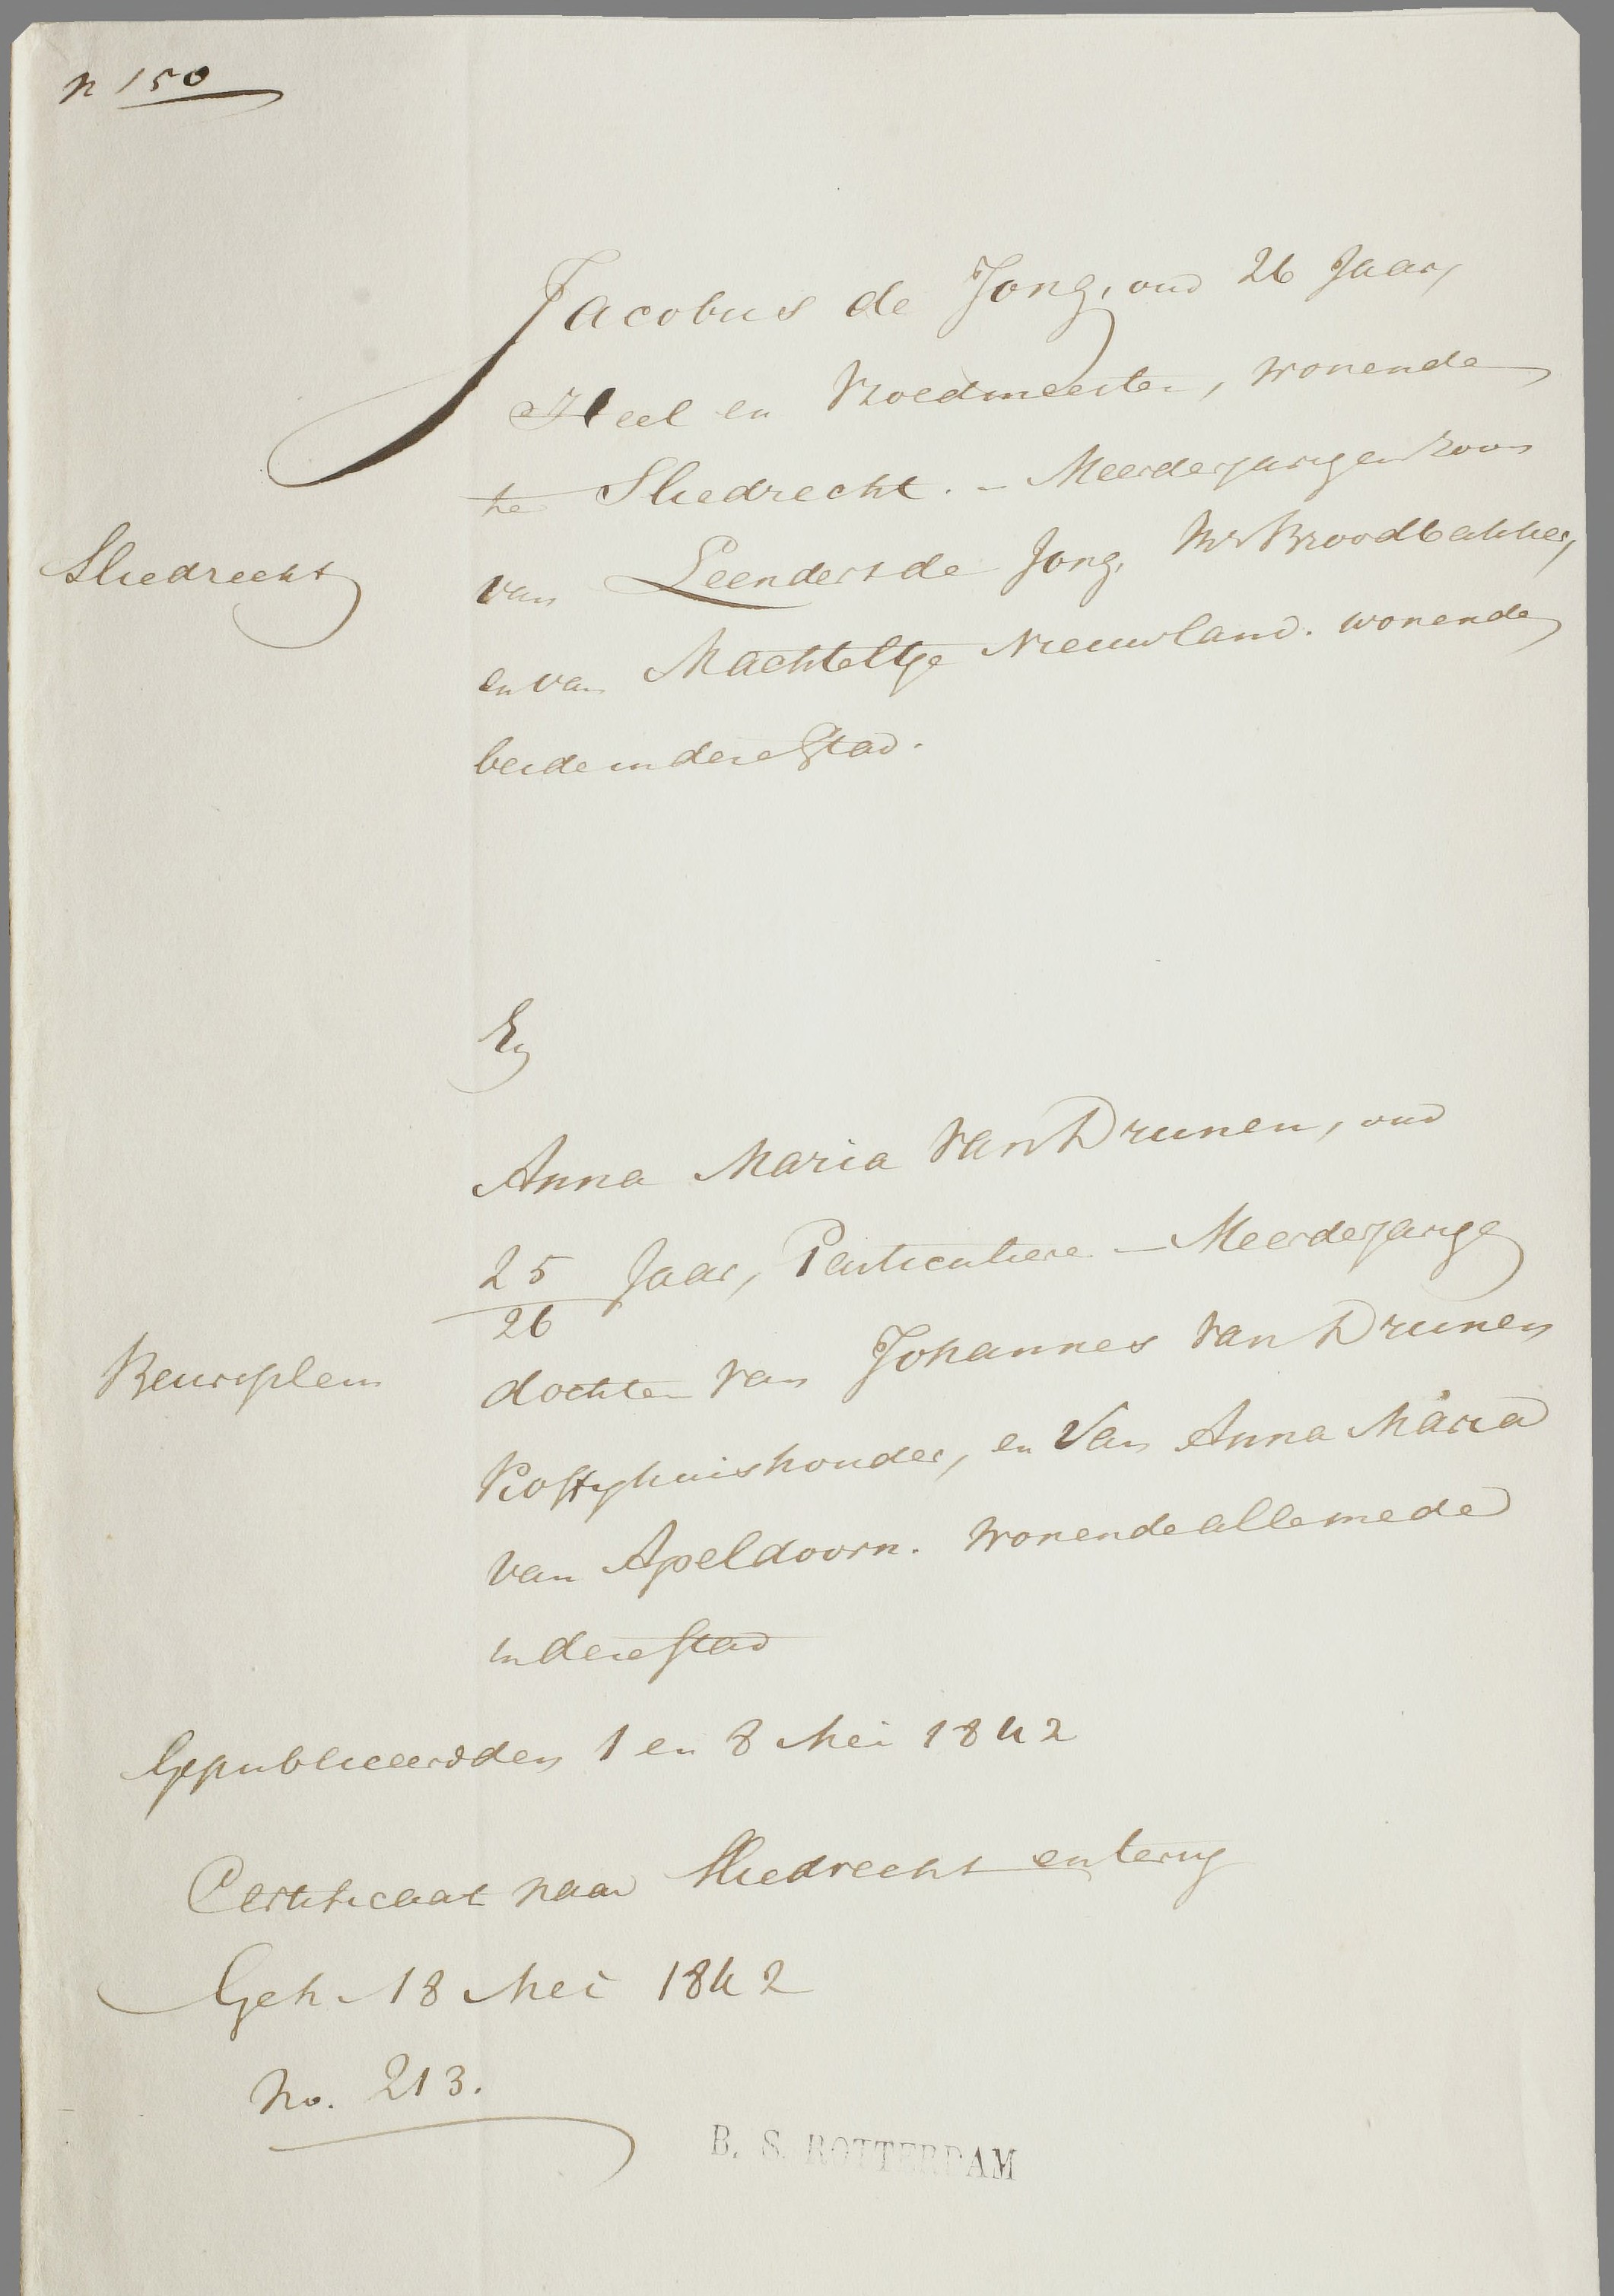 n 150
Jacobus de Jong, oud 26 Jaar,
Heel en Vroedmeester, wonende
te Sliedrecht. - Meerderjarigen Zoon
Sliedrecht
van Leendert de Jong, Mr Broodbakker,
en van Machteltje Nieuwland. wonende
beide in deze Stad.
En
Anna Maria van Drunen, oud
25 Jaar, Particuliere - Meerderjarige
26
Beursplein
dochter van Johannes van Drunen
Koffyhuishouder, en Van Anna Maria
van Apeldoorn. wonende alle mede
in deze Stad
Gepubliceerd den 1 en 8 Mei 1842
Certificaat naar Sliedrecht en terug
Geh. 18 Mei 1842
No. 213.
B. S. ROTTERDAM